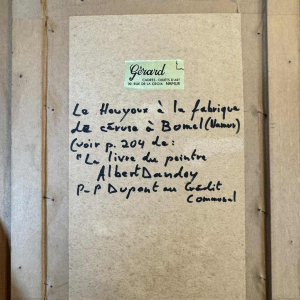 Gérard
CADRES - OBJETS D'ART
Le Houyoux à la fabrique
de céruse à Bomel (Namur)
(voir p. 204 de :
"Le livre du peintre
Albert Dandoy
P-P Dupont au Crédit
Communal